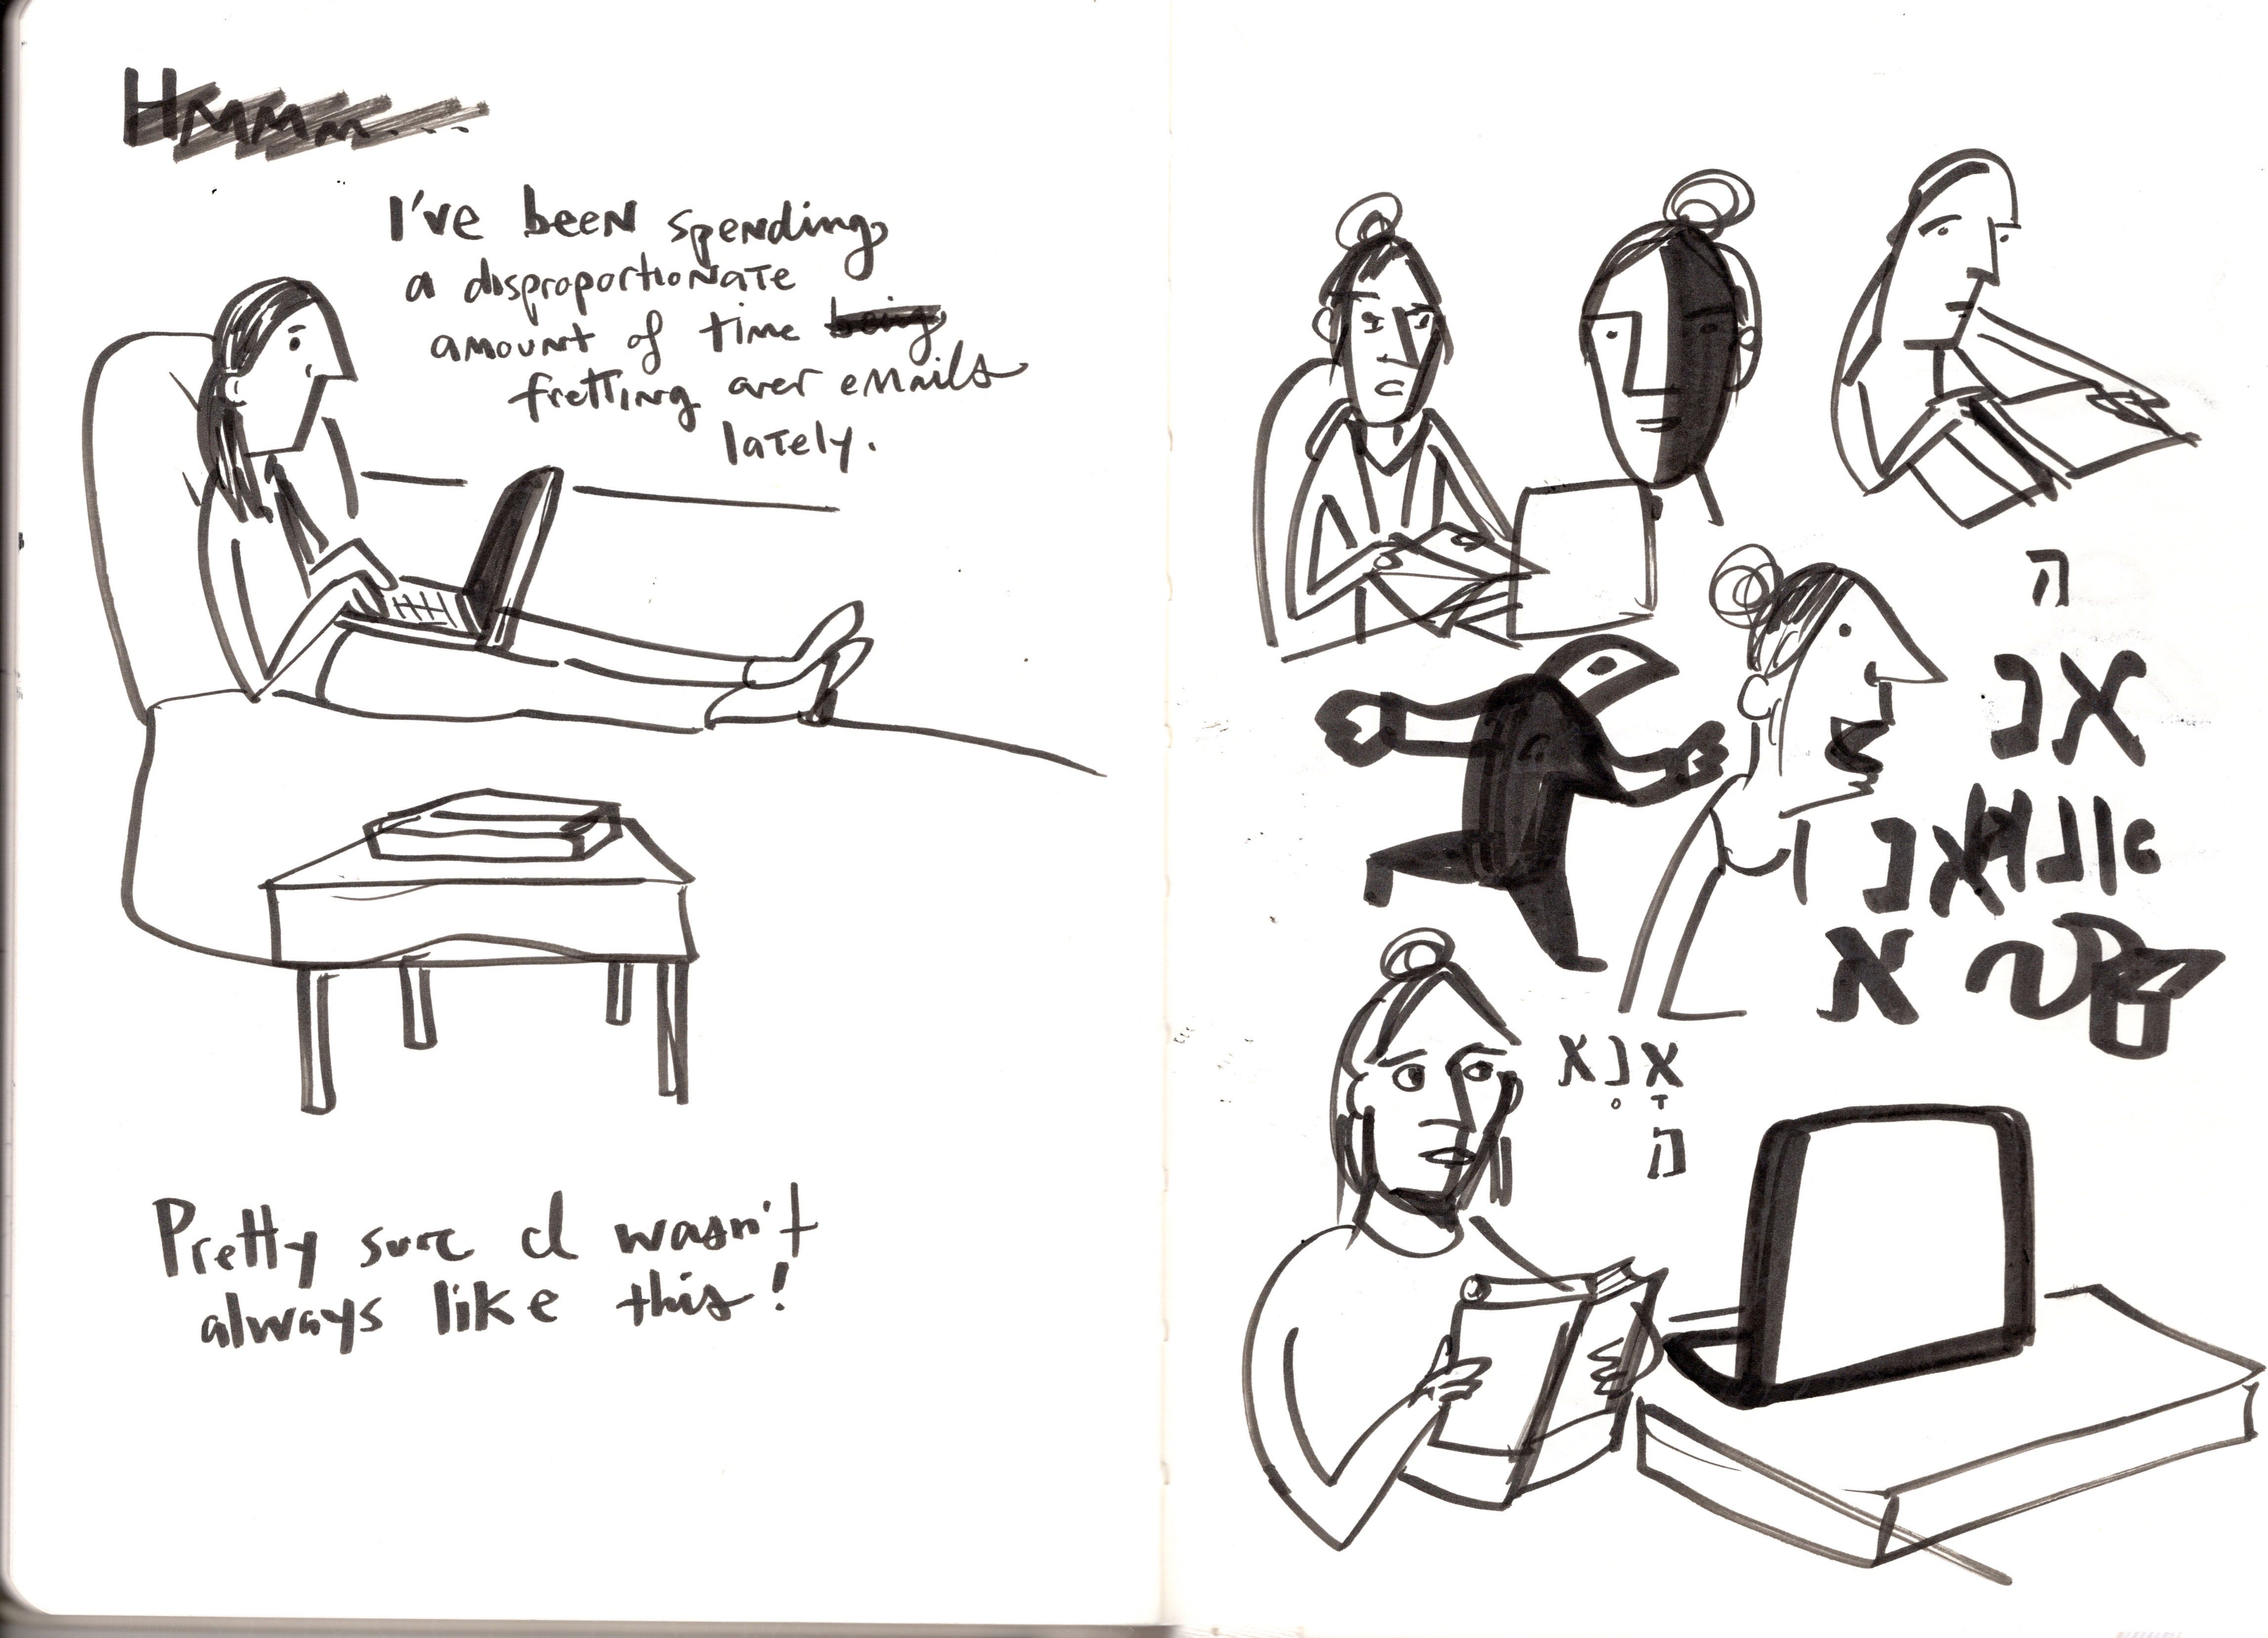 Hmmm....
I've been spending
a disproportionate
amount of time being
fretting over emails
lately.
Pretty sure I wasn't
always like this!
ה
אנ
א
אנא
ה